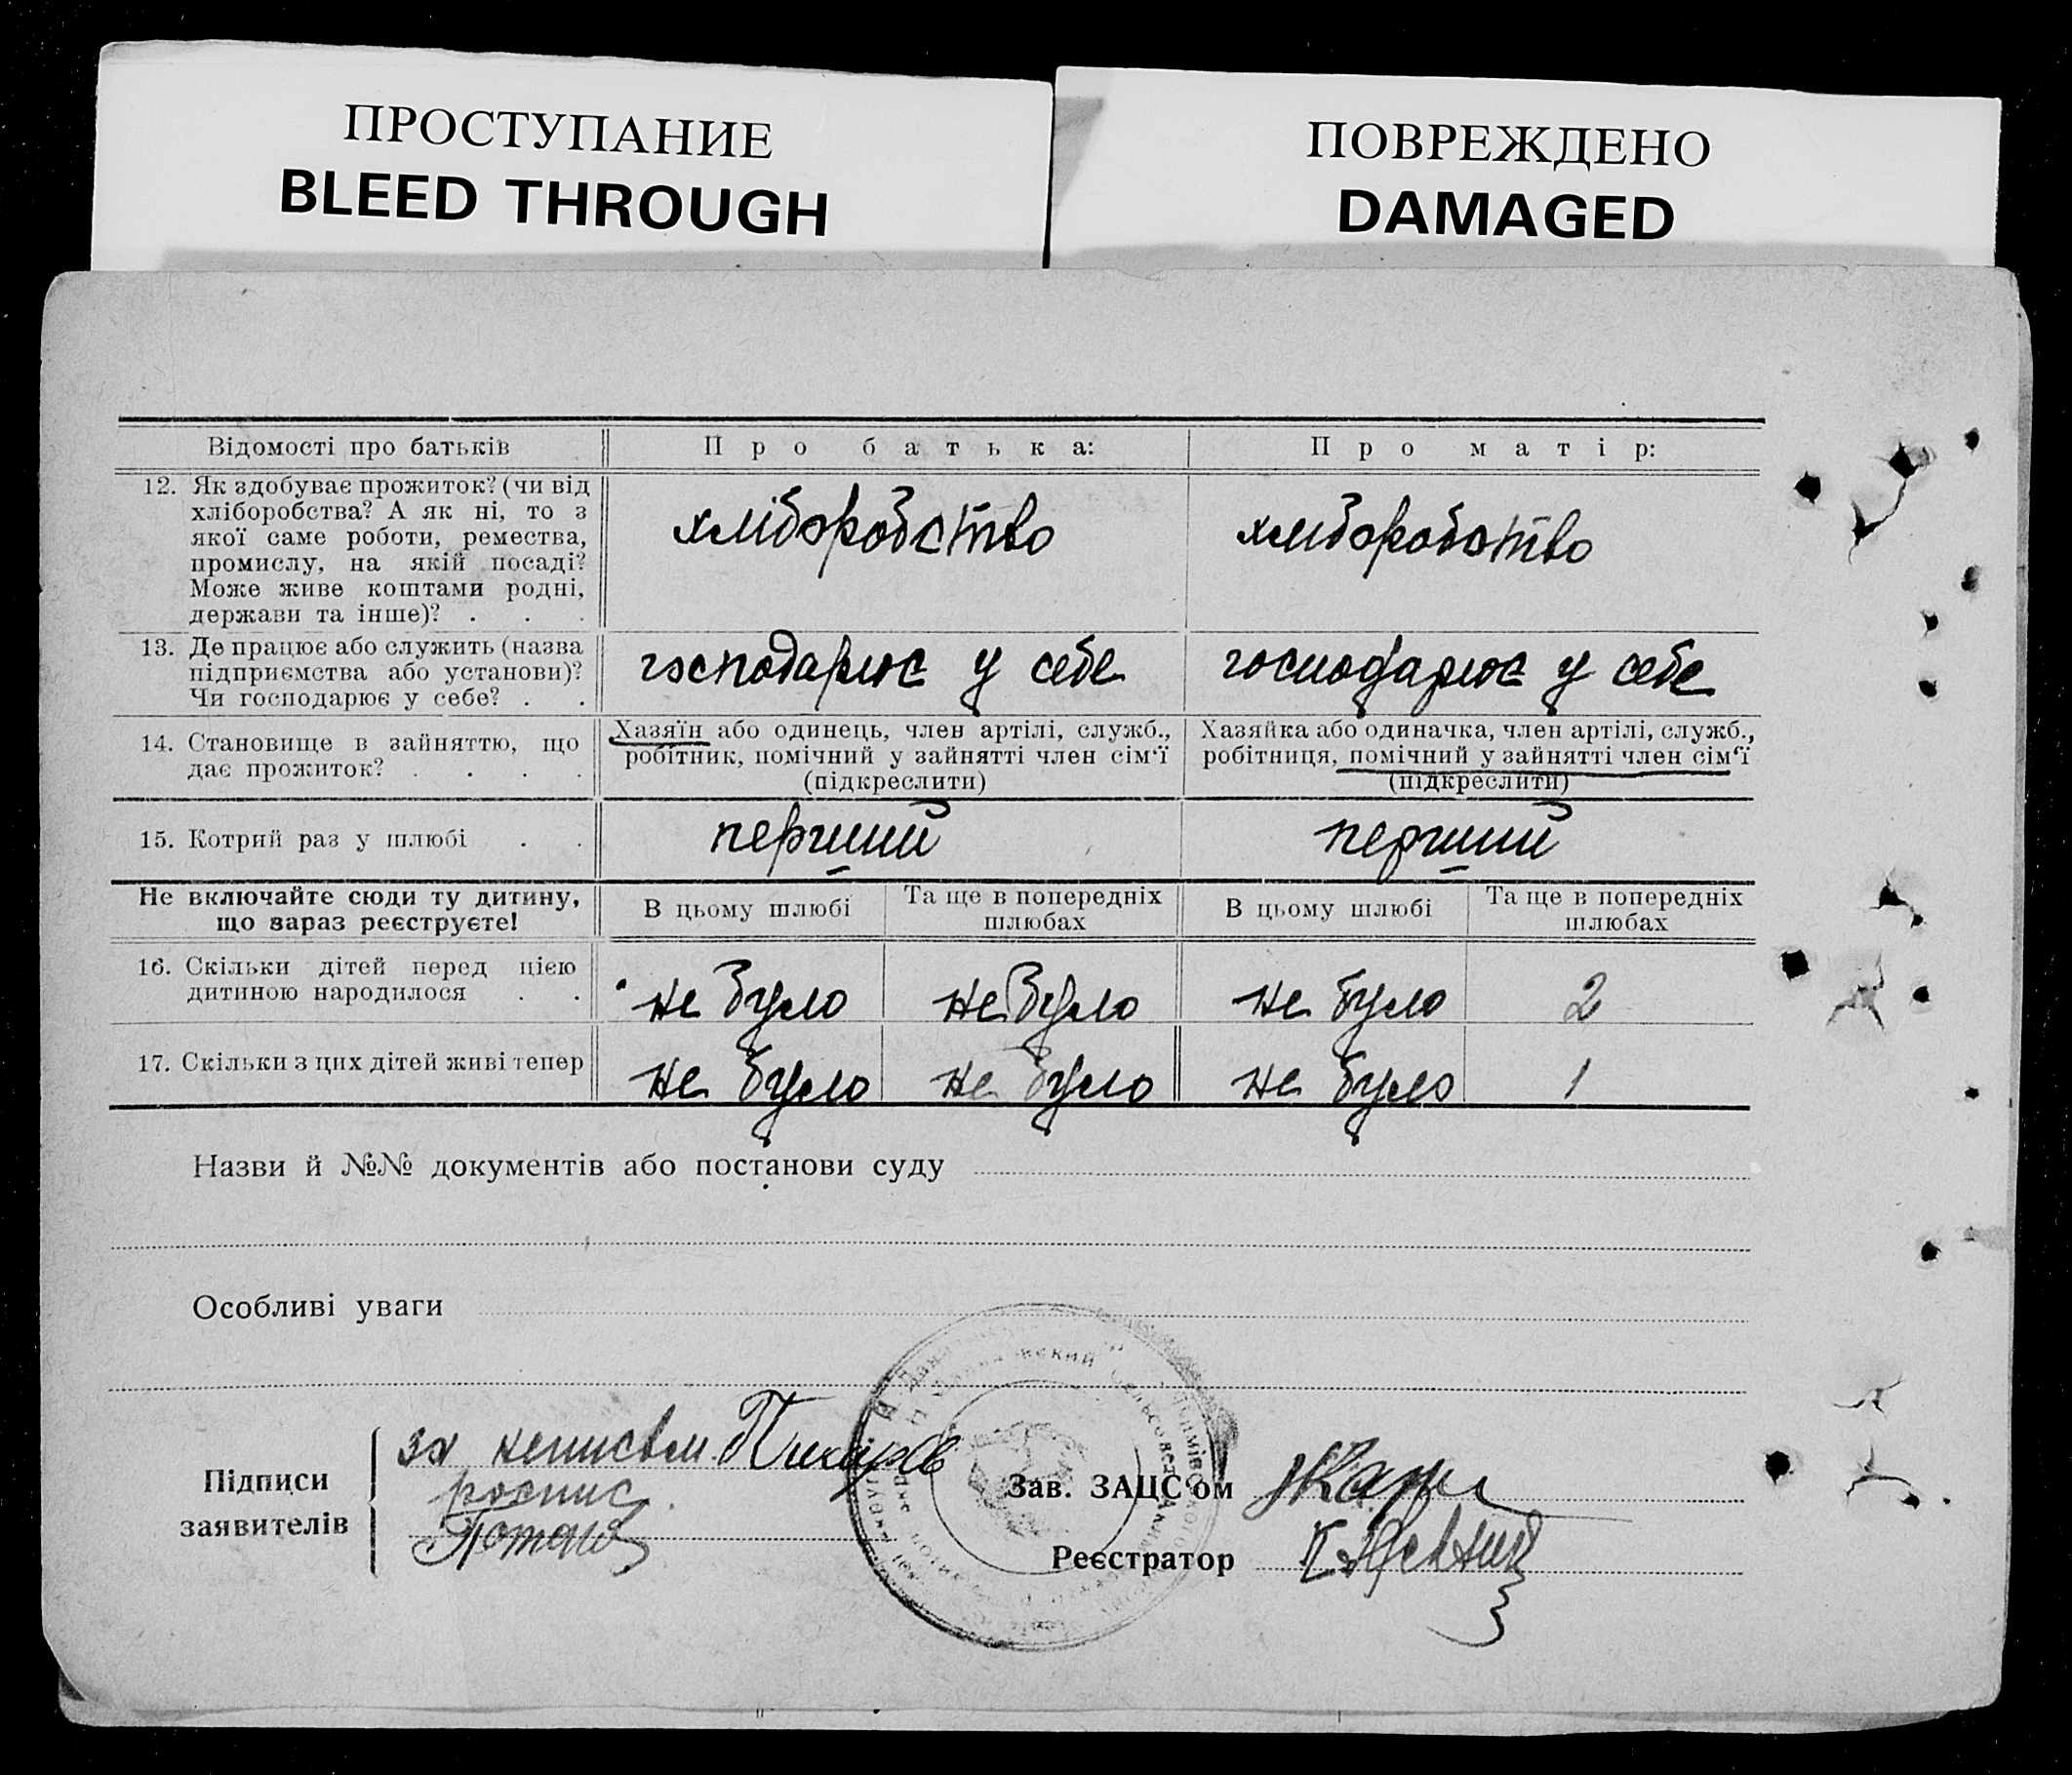 ПРОСТУПАНИЕ
BLEED THROUGH
ПОВРЕЖДЕНО
DAMAGED
Відомості про батьків
Про батька:
Про матір:
12. Як здобуває прожиток? (чи від
хліборобства? А як ні, то з
якої саме роботи, ремества,
промислу, на якій посаді?
Може живе коштами родні,
держави та інше)? . . .
хліборобство
хліборобство
13. Де працює або служить (назва
підприємства або установи)?
Чи господарює у себе? . .
господарює у себе
господарює у себе
14. Становище в зайняттю, що
дає прожиток? . . . .
Хазяїн або одинець, член артілі, служб.,
робітник, помічний у зайнятті член сім‘ї
(підкреслити)
Хазяйка або одиначка, член артілі, служб.,
робітниця, помічний у зайнятті член сім‘ї
(підкреслити)
15. Котрий раз у шлюбі . .
перший
перший
Не включайте сюди ту дитину,
що зараз реєструєте!
В цьому шлюбі
Та ще в попередніх
шлюбах
В цьому шлюбі
Та ще в попередніх
шлюбах
16. Скільки дітей перед цією
дитиною народилося . .
не було
не було
не було
2
17. Скільки з цих дітей живі тепер
не було
не було
не було
1
Назви й №№ документів або постанови суду
Особливі уваги
Підписи
заявителів
за
роспис
Зав. ЗАЦС‘ом
Реєстратор